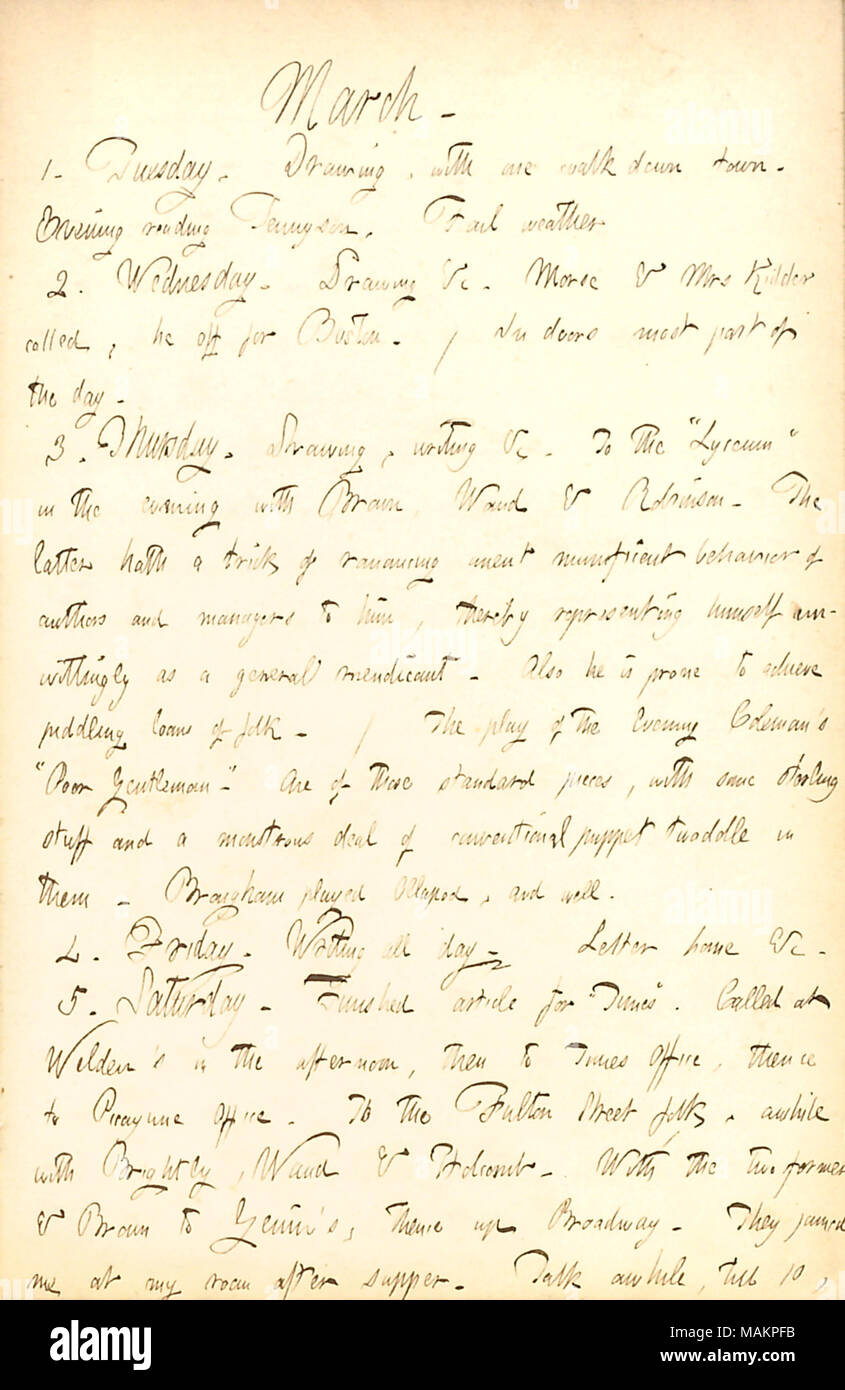 March -
1. Tuesday. Drawing, with one walk down town.
Evening reading Tennyson. Foul weather
2. Wednesday. Drawing &c. Morse & Mrs Kidder
called, he off for Boston. / In doors most part of
the day.
3. Thursday. Drawing, writing &c. To the "Lyceum"
in the evening with Brown, Waud & Robinson. The
latter hath a trick of romancing anent munificent behavior of
authors and managers to him, thereby representing himself un-
wittingly as a general mendicant. Also he is prone to achieve
piddling loans of folk. / The play of the Evening Coleman's
"Poor Gentleman". One of those standard pieces, with some sterling
stuff and a monstrous deal of conventional puppet twaddle in
them. Brougham played Ollapod, and well.
4. Friday. Writing all day. Letter home &c.
5. Saturday. Finished article for "Times". Called at
Welden's in the afternoon, then to Times Office, thence
to Picayune Office. To the Fulton Street folk, awhile
with Brightly, Waud & Holcomb. With the two former
& Brown to Genin's, thence up Broadway. They joined
me at my room after supper. Talk awhile, till 10,
alamy
alamy
Image ID: MAKPFB
www.alamy.com